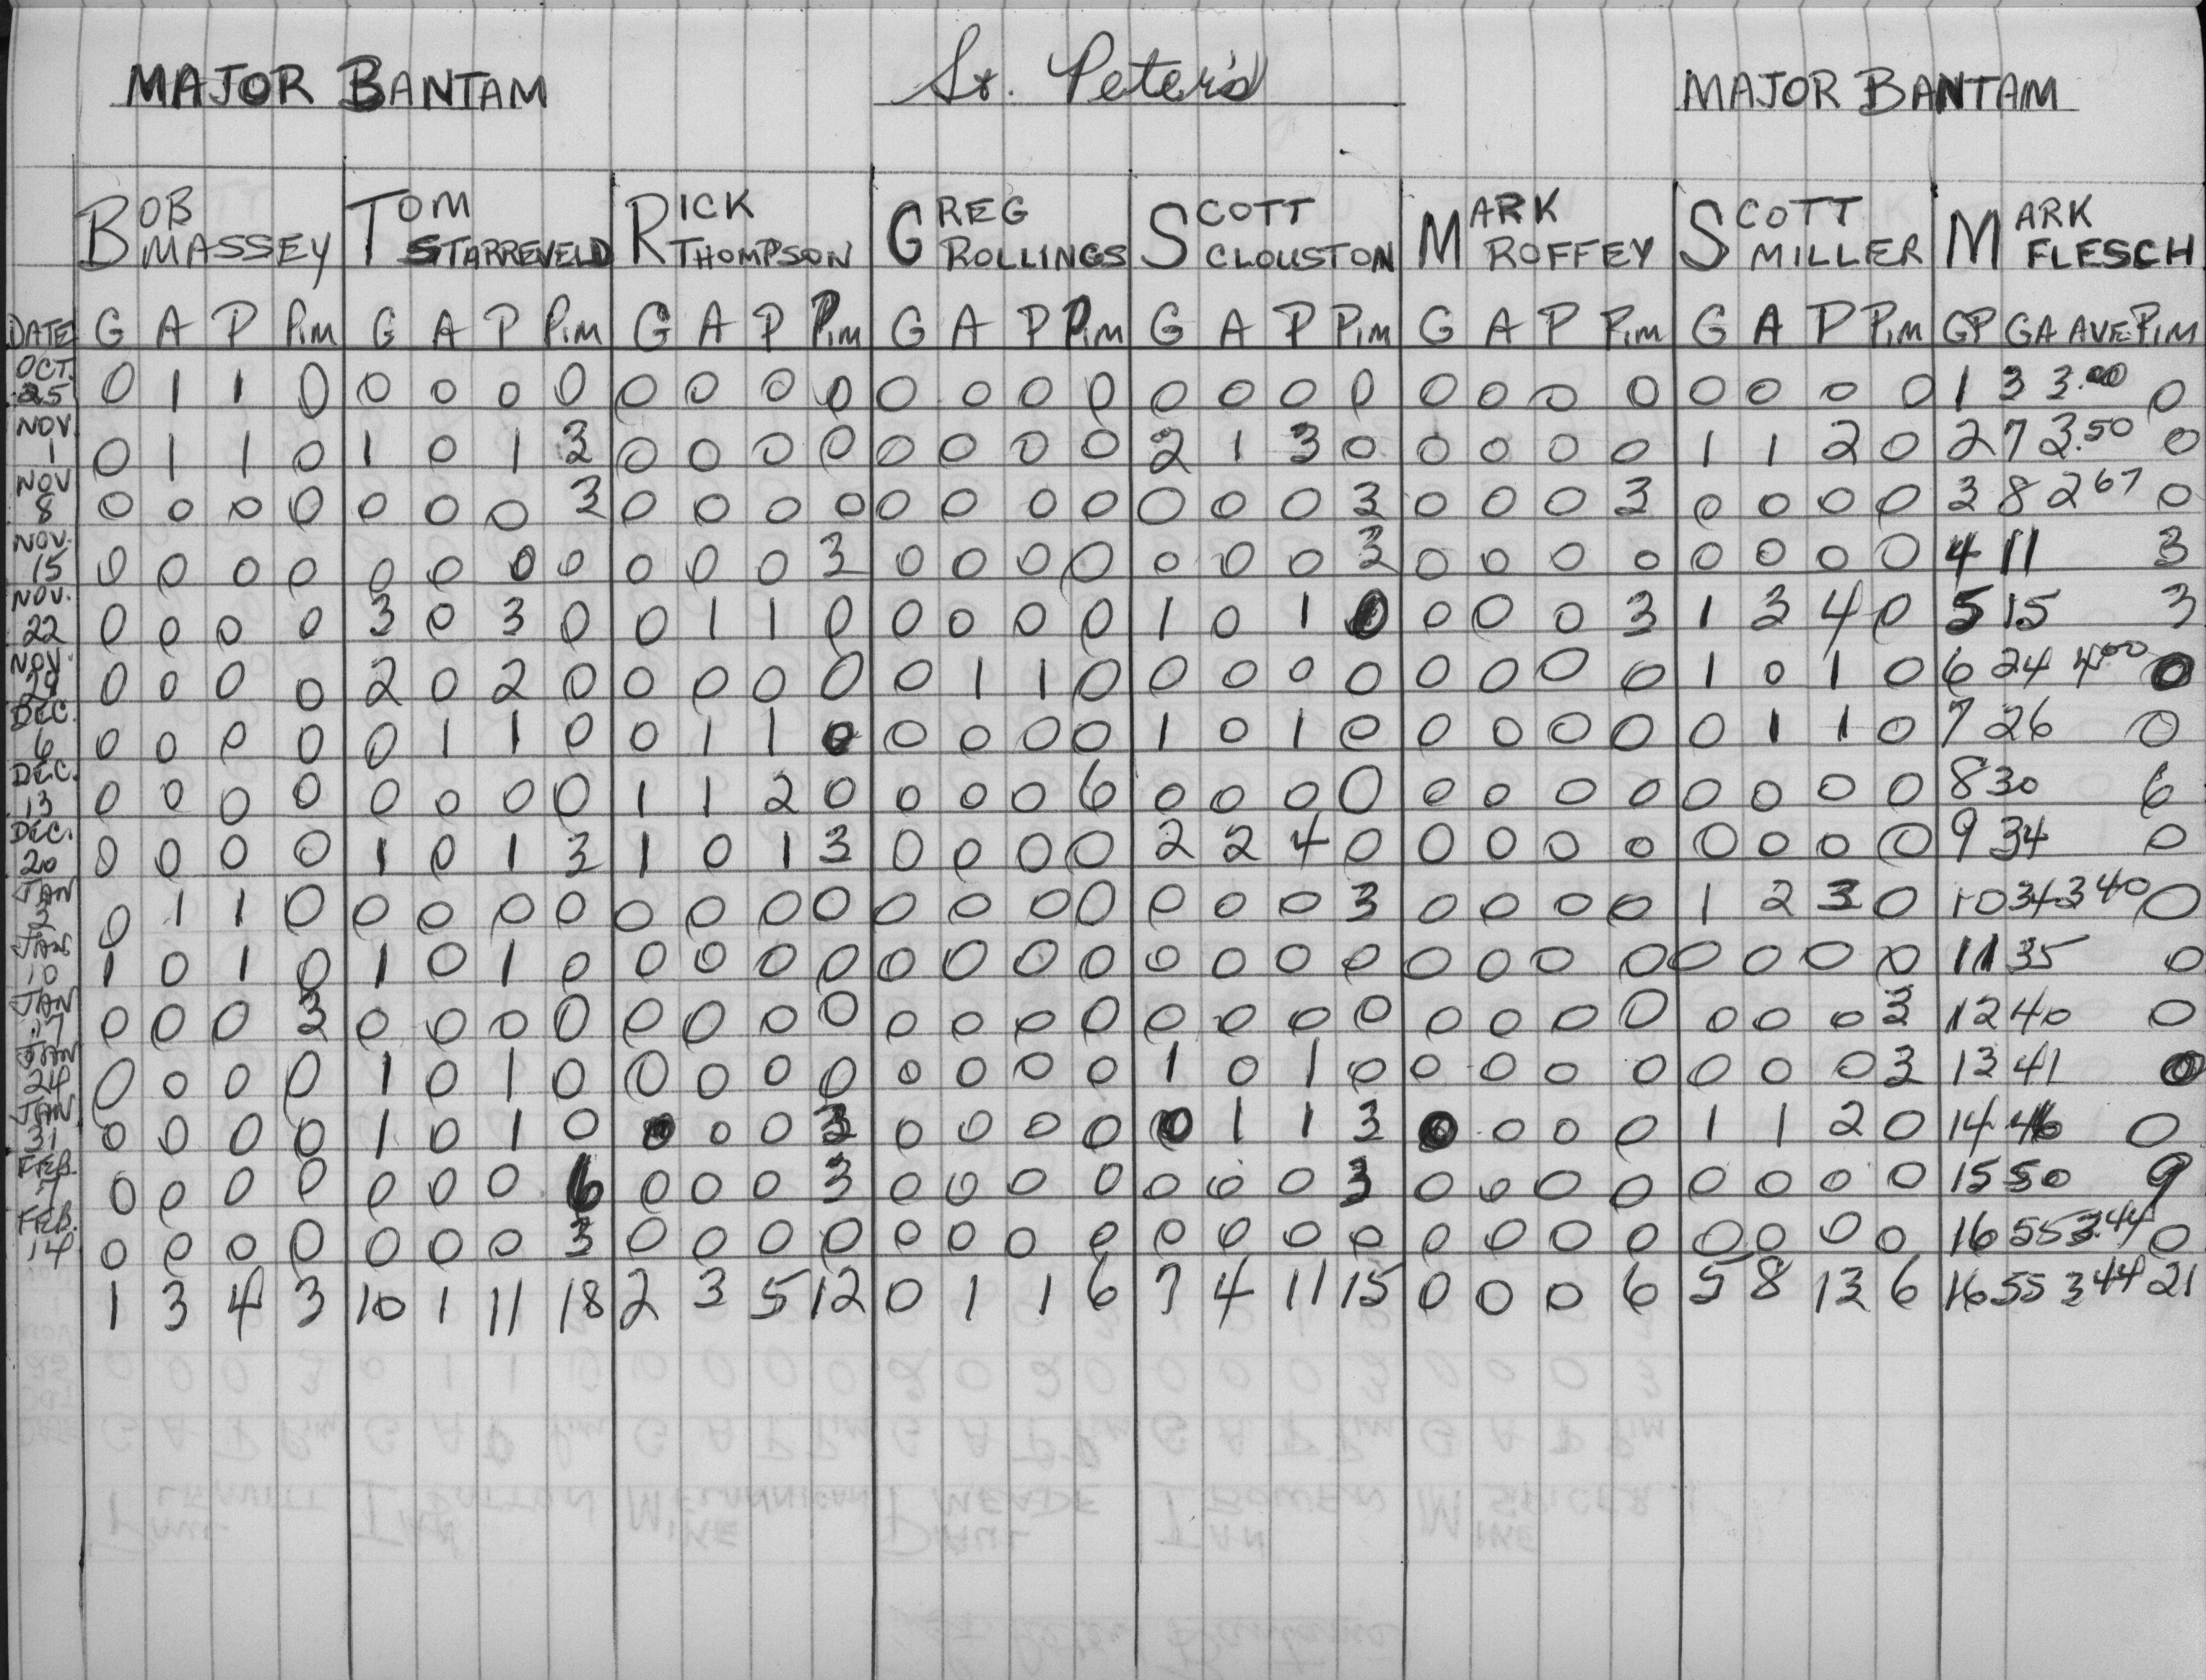 MAJOR BANTAM St. Peter's MAJOR BANTAM
BOB MASSEY TOM STARREVELD RICK THOMPSON GREG ROLLINGS SCOTT CLOUSTON MARK ROFFEY SCOTT MILLER MARK FLESCH
DATE G A P Pim G A P Pim G A P Pim G A P Pim G A P Pim G A P Pim G A P Pim GP GA AVE PIM
OCT. 25 0 1 1 0 0 0 0 0 0 0 0 0 0 0 0 0 0 0 0 0 0 0 0 0 0 0 0 0 1 3 3.00 0
NOV 1 0 1 1 0 1 0 1 3 0 0 0 0 0 0 0 0 2 1 3 0 0 0 0 0 1 1 2 0 2 7 3.50 0
NOV 8 0 0 0 0 0 0 0 3 0 0 0 0 0 0 0 0 0 0 0 3 0 0 0 3 0 0 0 0 3 8 2 67 0
NOV. 15 0 0 0 0 0 0 0 0 0 0 0 3 0 0 0 0 0 0 0 3 0 0 0 0 0 0 0 0 4 11 3
NOV. 22 0 0 0 0 3 0 3 0 0 1 1 0 0 0 0 0 1 0 1 0 0 0 0 3 1 3 4 0 5 15 3
NOV. 29 0 0 0 0 2 0 2 0 0 0 0 0 0 1 1 0 0 0 0 0 0 0 0 0 1 0 1 0 6 24 4 00 0
DEC. 6 0 0 0 0 0 1 1 0 0 1 1 0 0 0 0 0 1 0 1 0 0 0 0 0 0 1 1 0 7 26 0
DEC. 13 0 0 0 0 0 0 0 0 1 1 2 0 0 0 0 6 0 0 0 0 0 0 0 0 0 0 0 0 8 30 6
DEC. 20 0 0 0 0 1 0 1 3 1 0 1 3 0 0 0 0 2 2 4 0 0 0 0 0 0 0 0 0 9 34 0
JAN 3 0 1 1 0 0 0 0 0 0 0 0 0 0 0 0 0 0 0 0 3 0 0 0 0 1 2 3 0 10 34 3 40 0
JAN 10 1 0 1 0 1 0 1 0 0 0 0 0 0 0 0 0 0 0 0 0 0 0 0 0 0 0 0 0 11 35 0
JAN 17 0 0 0 3 0 0 0 0 0 0 0 0 0 0 0 0 0 0 0 0 0 0 0 0 0 0 0 3 12 40 0
JAN 24 0 0 0 0 1 0 1 0 0 0 0 0 0 0 0 0 1 0 1 0 0 0 0 0 0 0 0 3 13 41 0
JAN 31 0 0 0 0 1 0 1 0 0 0 0 3 0 0 0 0 0 1 1 3 0 0 0 0 1 1 2 0 14 46 0
FEB. 7 0 0 0 0 0 0 0 6 0 0 0 3 0 0 0 0 0 0 0 3 0 0 0 0 0 0 0 0 15 50 9
FEB. 14 0 0 0 0 0 0 0 3 0 0 0 0 0 0 0 0 0 0 0 0 0 0 0 0 0 0 0 0 16 55 3.44 0
1 3 4 3 10 1 11 18 2 3 5 12 0 1 1 6 7 4 11 15 0 0 0 6 5 8 13 6 16 55 3 44 21